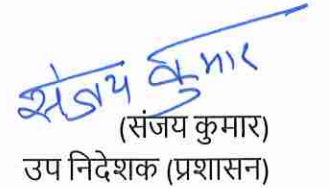 संजय कुमार
(संजय कुमार)
उप निदेशक (प्रशासन)